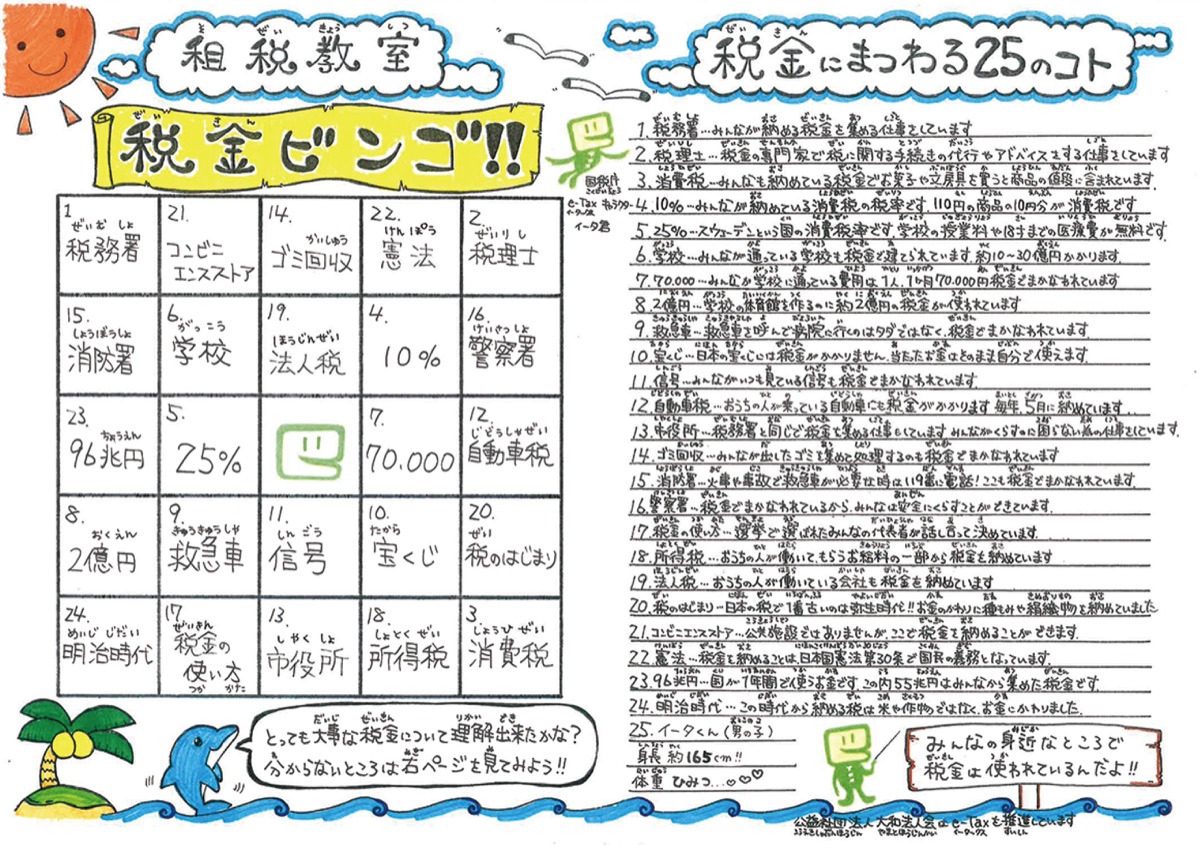 租税教室
税金ビンゴ!!
国税庁
e-Tax キャラクター
イータ君
1. 税務署
21. コンビニエンスストア
14. ゴミ回収
22. 憲法
2. 税理士
15. 消防署
6. 学校
19. 法人税
4. 10%
16. 警察署
23. 96兆円
5. 25%
7. 70.000
12. 自動車税
8. 2億円
9. 救急車
11. 信号
10. 宝くじ
20. 税のはじまり
24. 明治時代
17. 税金の使い方
13. 市役所
18. 所得税
3. 消費税
とっても大事な税金について理解出来たかな?
分からないところは右ページを見てみよう!!
税金にまつわる25のコト
1. 税務署…みんなが納める税金を集める仕事をしています
2. 税理士…税金の専門家で税に関する手続きの代行やアドバイスをする仕事をしています
3. 消費税…みんなも納めている税金でお菓子や文房具を買うと商品の値段に含まれています
4. 10%…みんなが納めている消費税の税率です。110円の商品の10円分が消費税です
5. 25%…スウェーデンという国の消費税率です。学校の授業料や18才までの医療費が無料です
6. 学校…みんなが通っている学校も税金で建てられています。約10~30億円かかります。
7. 70.000…みんなが学校に通っている費用は1人、1か月70.000円税金でまかなわれています
8. 2億円…学校の体育館を作るのに約2億円の税金が使われています
9. 救急車…救急車を呼んで病院に行くのはタダではなく、税金でまかなわれています
10. 宝くじ…日本の宝くじには税金がかかりません。当たったお金はそのまま自分で使えます。
11. 信号…みんながいつも見ている信号も税金でまかなわれています
12. 自動車税…おうちの人が乗っている自動車にも税金がかかります 毎年、5月に納めています
13. 市役所…税務署と同じで税金を集める仕事もしています みんながくらすのに困らない為の仕事をしています
14. ゴミ回収…みんなが出したゴミを集めて処理するのも税金でまかなわれています
15. 消防署…火事や事故で救急車が必要な時は119番に電話!ここも税金でまかなわれています。
16. 警察署…税金でまかなわれているから、みんなは安全にくらすことができています。
17. 税金の使い方…選挙で選ばれたみんなの代表者が話し合って決めています。
18. 所得税…おうちの人が働いて、もらうお給料の一部から税金を納めています
19. 法人税…おうちの人が働いている会社も税金を納めています
20. 税のはじまり…日本の税で1番古いのは弥生時代!!お金のかわりに種もみや絹織物を納めていました
21. コンビニエンスストア…公共施設ではありませんが、ここで税金を納めることができます。
22. 憲法…税金を納めることは、日本国憲法第30条で国民の義務となっています。
23. 96兆円…国が1年間で使うお金です。この内55兆円はみんなから集めた税金です。
24. 明治時代…この時代から納める税は米や作物ではなく、お金にかわりました。
25. イータくん(男の子)
身長 約165cm!!
体重 ひみつ…
みんなの身近なところで
税金は使われているんだよ!!
公益社団法人 大和法人会はe-Taxを推進しています